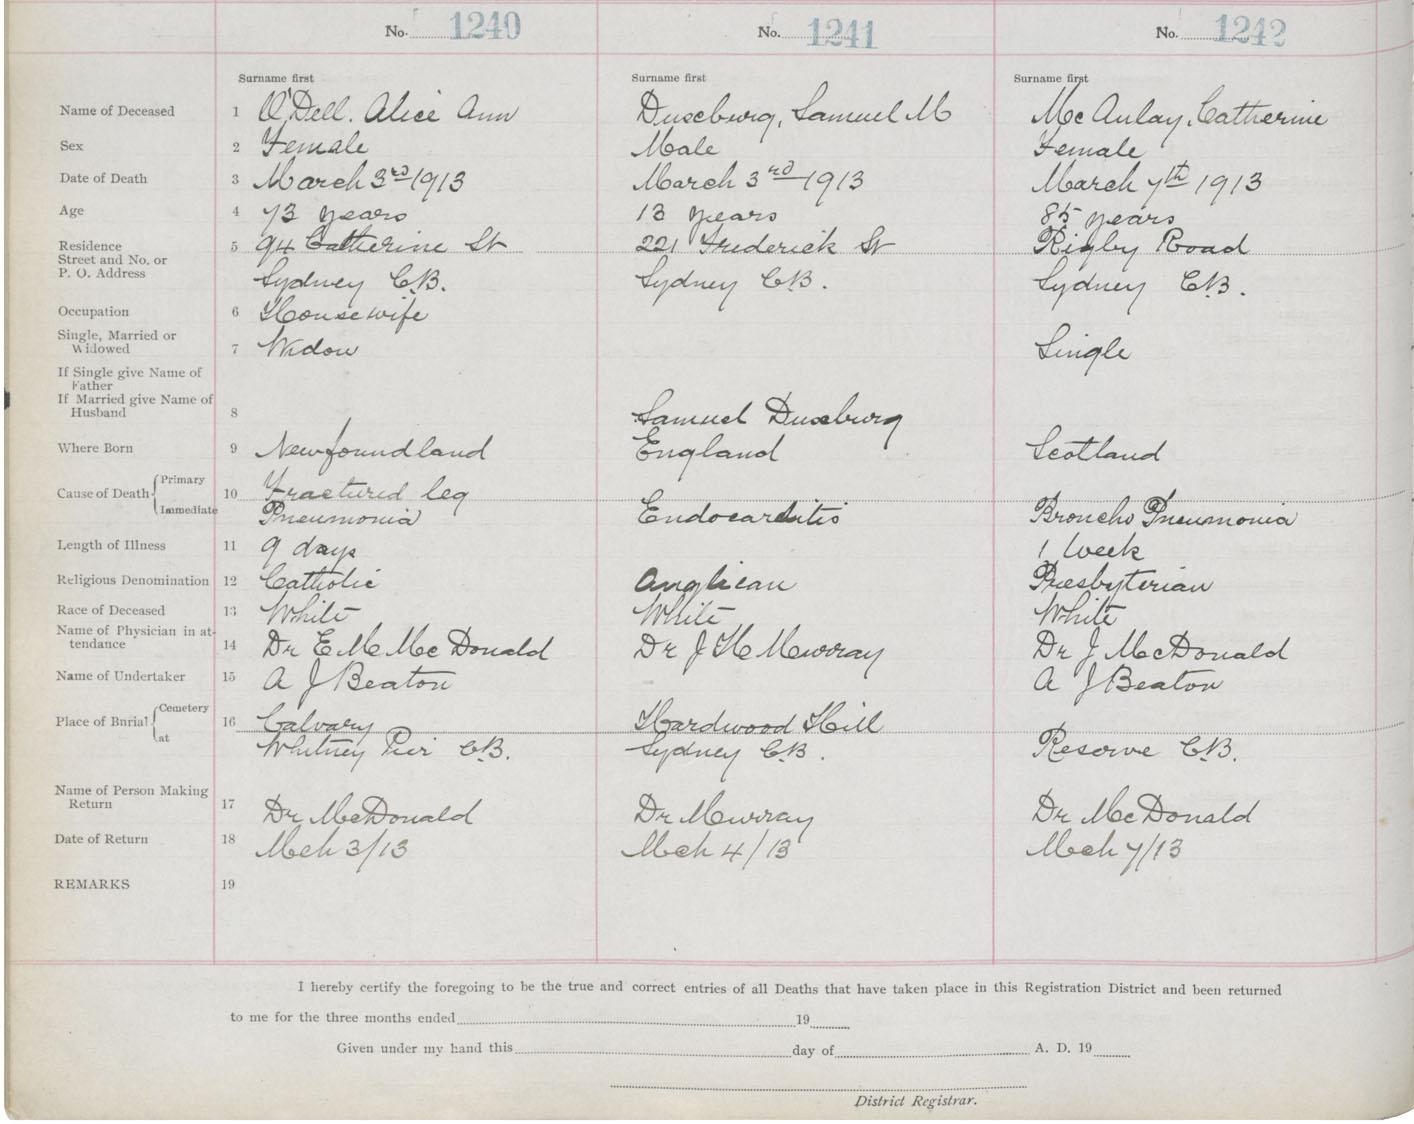 No. 1240 No. 1241 No. 1242
Surname first Surname first Surname first
Name of Deceased 1 O'Dell. Alice Ann Duseburg, Samuel M McAulay, Catherine
Sex 2 Female Male Female
Date of Death 3 March 3rd 1913 March 3rd 1913 March 7th 1913
Age 4 73 years 13 years 85 years
Residence 5 94 Catherine St 221 Frederick St Rigby Road
Street and No. or
P. O. Address Sydney C.B. Sydney C.B. Sydney C.B.
Occupation 6 Housewife
Single, Married or
Widowed 7 Widow Single
If Single give Name of
Father
If Married give Name of
Husband 8 Samuel Duseburg
Where Born 9 Newfoundland England Scotland
Cause of Death Primary 10 Fractured leg
Immediate Pneumonia Endocarditis Broncho Pneumonia
Length of Illness 11 9 days 1 Week
Religious Denomination 12 Catholic Anglican Presbyterian
Race of Deceased 13 White White White
Name of Physician in at-
tendance 14 Dr E Mc McDonald Dr J H Murray Dr J McDonald
Name of Undertaker 15 A J Beaton A J Beaton
Place of Burial Cemetery 16 Calvary Hardwood Hill
at Whitney Pier C.B. Sydney C.B. Reserve C.B.
Name of Person Making
Return 17 Dr McDonald Dr Murray Dr McDonald
Date of Return 18 Mch 3/13 Mch 4/13 Mch 7/13
REMARKS 19
I hereby certify the foregoing to be the true and correct entries of all Deaths that have taken place in this Registration District and been returned
to me for the three months ended 19
Given under my hand this day of A. D. 19
District Registrar.